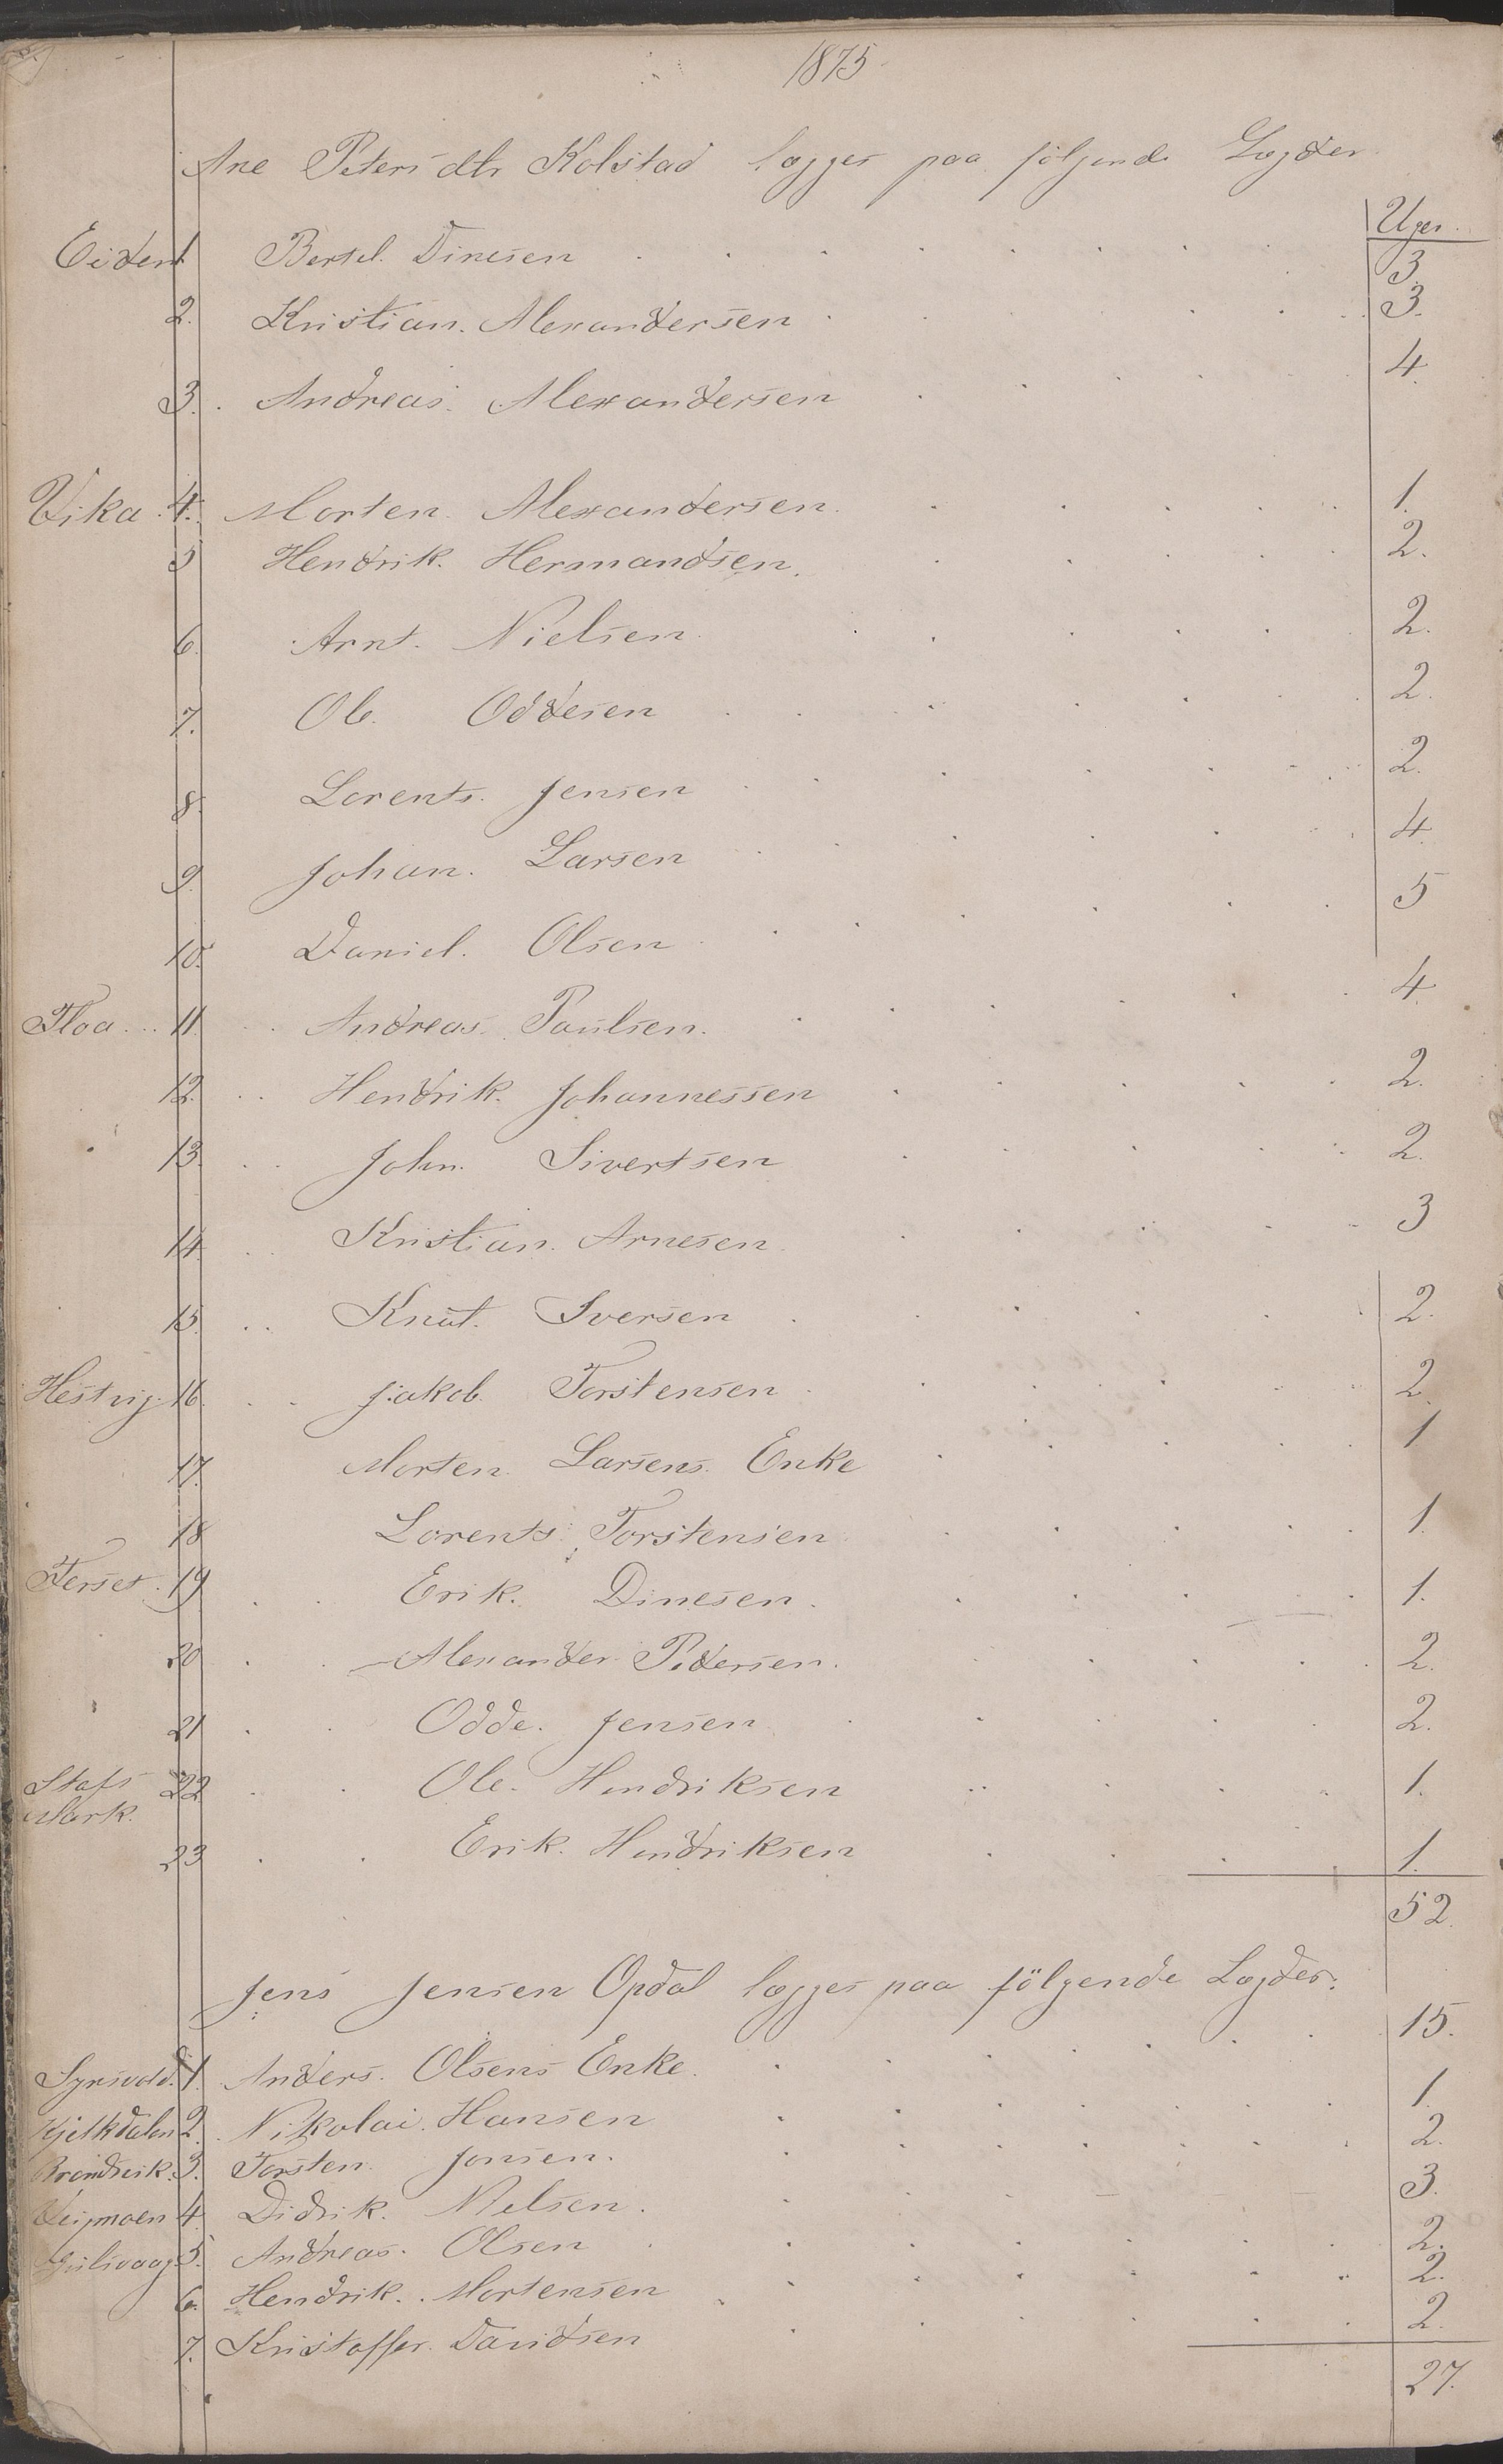 1875
Ane Petersdtr Kolstad lægges paa følgende Lægder
Uger.
Eidem 1 Bertel. Dinesen 3
2. Kristian. Alexandersen 3.
3. Andreas. Alexandersen 4.
Vika. 4. Morten. Alexandersen. 1.
5 Hendrik. Hermandsen. 2.
6. Arnt. Nielsen. 2.
7. Ole. Oddesen 2.
8. Lorents. Jensen 2.
9. Johan. Larsen 4.
10. Daniel. Olsen 5
Floa... 11. Andreas. Paulsen. 4.
12. Hendrik. Johannessen 2.
13. John. Sivertsen 2.
14. Kristian. Arnesen 3
15. Knut. Iversen 2.
Hestvig. 16. Jakob. Torstensen 2.
17. Morten. Larsens. Enke 1
18 Lorents. Torstensen 1.
Ferset. 19 Erik. Dinesen. 1.
20 Alexander Pedersen. 2.
21 Odde. Jensen 2.
Stafs 22 Ole. Hendriksen 1.
Mark.
23 Erik. Hendriksen 1.
52.
Jens Jensen Opdal lægges paa følgende Lægder:
1. Anders. Olsens Enke. 15.
Kjelkdalen 2. Nikolai. Hansen 1.
3. Torsten. Jonsen. 2.
4. Didrik. Nielsen. 3.
5. Andreas. Olsen 2.
6. Hendrik. Mortensen 2.
7. Kristoffer. Davidsen 2.
27.